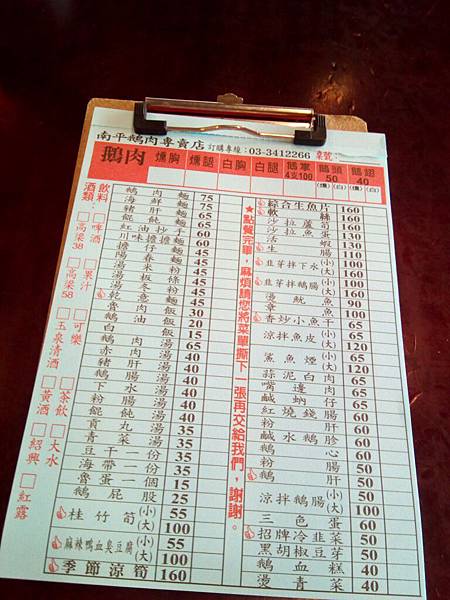 南平鵝肉專賣店 訂購專線:03-3412266 桌號:
鵝肉 燻胸 燻腿 白胸 白腿 鵝掌4支100 鵝頭50(燻)(白) 鵝翅40(燻)(白)
飲料 酒類
啤酒
高梁38
果汁
高梁58
可樂
玉泉清酒
茶飲
黃酒
大水
紹興
紅露
鵝肉麵 75
海鮮麵 75
豬肝麵 65
餛飩麵 65
紅油抄手 60
川味擔擔麵 60
擔仔麵
湯米粉 45
湯板條 45
湯冬粉 45
湯意麵 45
乾麵 30
鵝油飯 20
白飯 15
鵝肉湯 65
赤肉湯 40
豬肝湯 40
下水湯 40
粉腸湯 40
餛飩湯 40
貢丸湯 35
青菜湯 35
豆干一份 35
海帶一份 35
魯蛋一個 15
鵝屁股 25
桂竹筍 (小) 55 (大) 100
麻辣鴨血臭豆腐 (小) 55 (大) 100
季節涼筍 160
★點餐完畢,麻煩請您將菜單撕下一張再交給我們,謝謝。
綜合生魚片 160
軟絲 160
沙拉蘆筍 100
沙拉魚蛋 130
活蝦 130
生腸 110
韭菜拌下水 (小) 100 (大) 160
韭芽拌鵝腸 (小) 100 (大) 160
燙魷魚 90
章魚 100
香炒小魚干 (小) 65 (大) 120
涼拌魚皮 (小) 65 (大) 120
鯊魚煙 (小) 65 (大) 120
蒜泥白肉 65
嘴邊肉 65
鹹蚋仔 65
紅燒鵝腸 60
粉肝 60
鹹水鵝胗 60
鵝心 60
粉腸 50
鵝肝 50
涼拌鵝腸 (小) 50 (大) 100
三色蛋 60
招牌冷韭菜 50
黑胡椒豆芽 50
鵝血糕 40
燙青菜 40